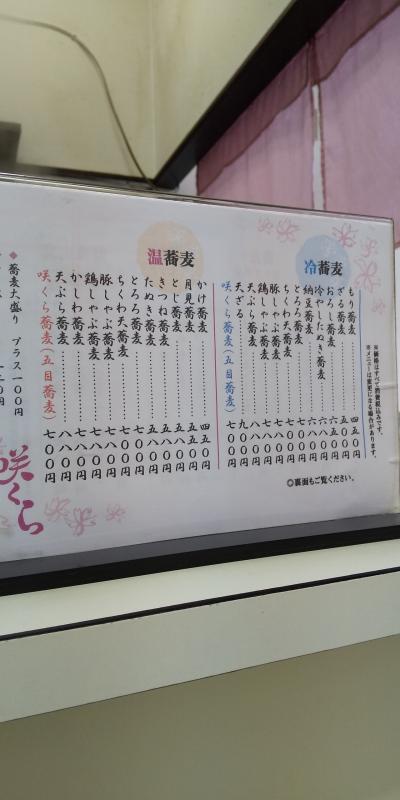 ※価格はすべて消費税込みです。
※メニューは変更になる場合があります。
冷蕎麦
もり蕎麦……四五〇円
ざる蕎麦……五〇〇円
おろし蕎麦……六五〇円
冷やしたぬき蕎麦……六〇〇円
納豆蕎麦……
とろろ蕎麦……七〇〇円
ちくわ天蕎麦……七〇〇円
豚しゃぶ蕎麦……八〇〇円
鶏しゃぶ蕎麦……七〇〇円
天ぷら蕎麦……八〇〇円
天ざる……九〇〇円
咲くら蕎麦(五目蕎麦)……七〇〇円
温蕎麦
かけ蕎麦……四五〇円
月見蕎麦……
とじ蕎麦……
きつね蕎麦……
たぬき蕎麦……
とろろ蕎麦……七〇〇円
ちくわ天蕎麦……七〇〇円
豚しゃぶ蕎麦……八〇〇円
鶏しゃぶ蕎麦……七〇〇円
かしわ蕎麦……
天ぷら蕎麦……八〇〇円
咲くら蕎麦(五目蕎麦)……七〇〇円
◎裏面もご覧ください。
◆蕎麦大盛り プラス一〇〇円
咲くら